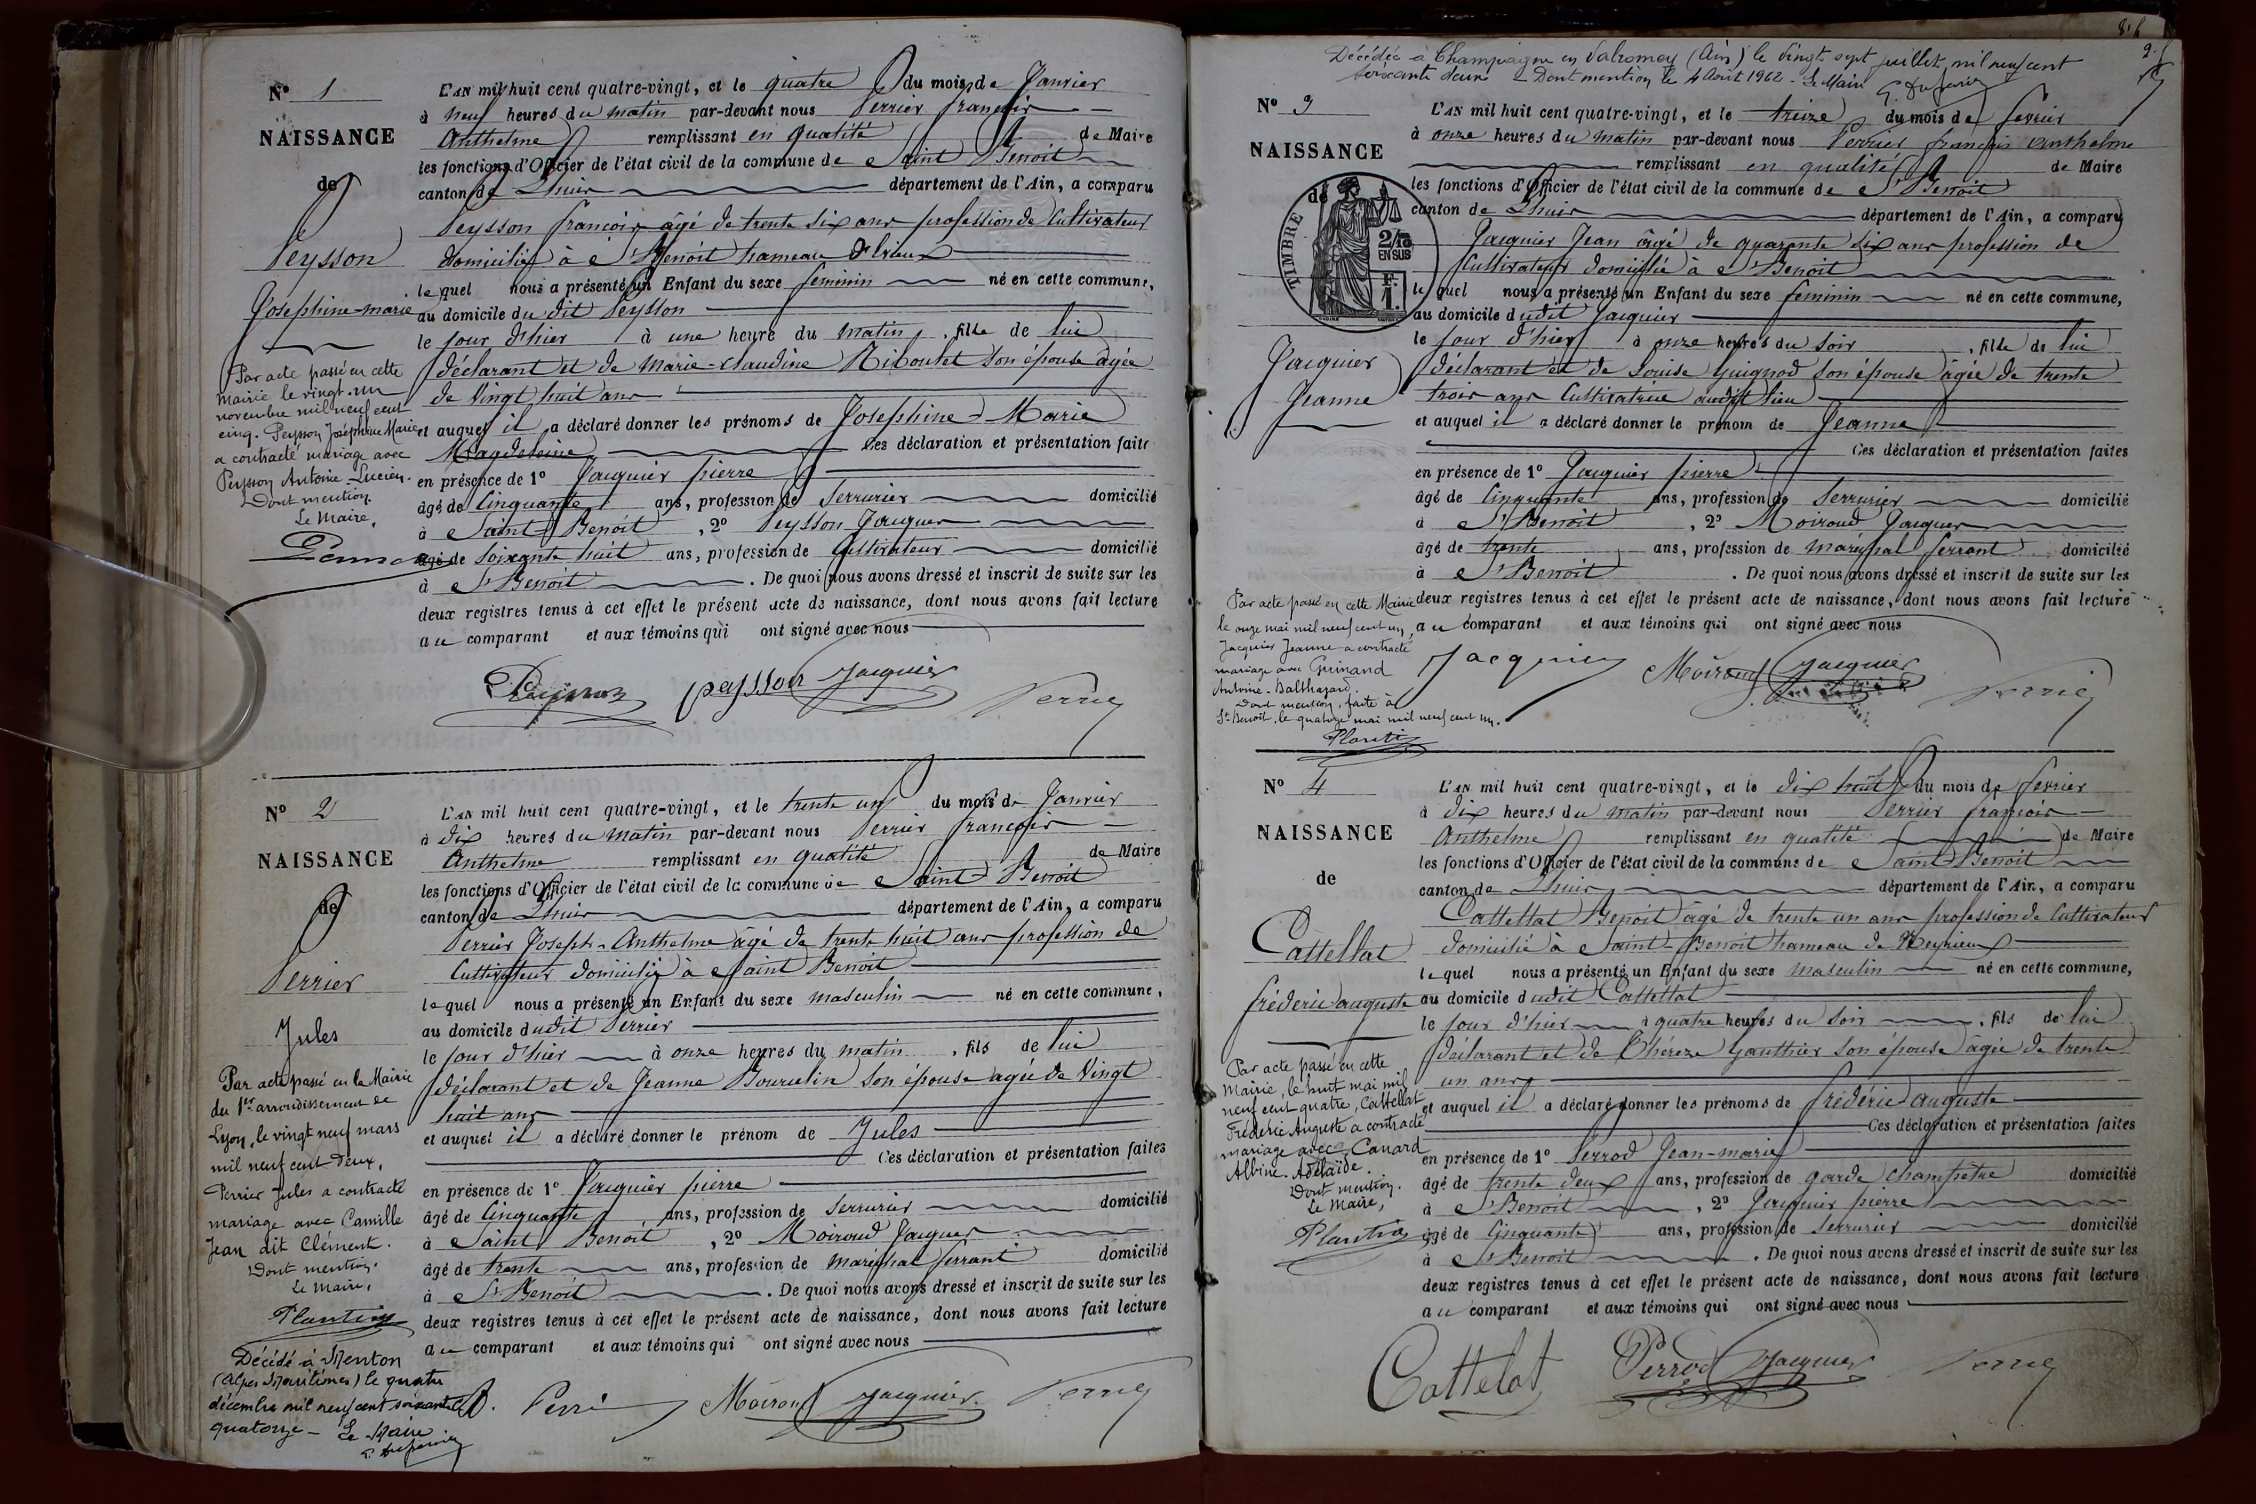 N° 1
NAISSANCE
de
Peysson
Josephine-marie
Par acte passé en cette
Mairie le vingt-un
novembre mil neuf cent
cinq. Peysson Joséphine Marie
a contracté mariage avec
Peysson Antoine-Lucien.
Dont mention.
Le Maire,
L'AN mil huit cent quatre-vingt, et le quatre du mois de Janvier
à neuf heures du matin par-devant nous Perrier françois
Anthelme remplissant en qualité de Maire
les fonctions d'Officier de l'état civil de la commune de Saint Benoit
canton de Lhuis département de l'Ain, a comparu
Peysson françois âgé de trente six ans profession de Cultivateur
domicilié à St Benoit hameau
lequel nous a présenté un Enfant du sexe feminin né en cette commune,
au domicile du dit Peysson
le jour d'hier à une heure du matin, fille de lui
déclarant et de Marie-Claudine Riboulet son épouse âgée
de Vingt huit ans
et auquel il a déclaré donner les prénoms de Josephine-Marie
Magdeleine Ces déclaration et présentation faites
en présence de 1° Jacquier pierre
âgé de Cinquante ans, profession de Serrurier domicilié
à Saint Benoit, 2° Peysson Jacques
âgé de soixante huit ans, profession de Cultivateur domicilié
à St Benoit. De quoi nous avons dressé et inscrit de suite sur les
deux registres tenus à cet effet le présent acte de naissance, dont nous avons fait lecture
au comparant et aux témoins qui ont signé avec nous
Peysson peysson Jacquier Perrier
N° 2
NAISSANCE
de
Perrier
Jules
Par acte passé en la Mairie
du 1er arrondissement de
Lyon, le vingt neuf mars
mil neuf cent deux,
Perrier Jules a contracté
mariage avec Camille
Jean dit Clément.
Dont mention.
Le Maire,
Plantin
Décédé à Menton
(Alpes Maritimes) le quatre
décembre mil neuf cent soixante
quatorze - Le Maire
L'AN mil huit cent quatre-vingt, et le trente un du mois de Janvier
à dix heures du matin par-devant nous Perrier françois
Anthelme remplissant en qualité de Maire
les fonctions d'Officier de l'état civil de la commune de Saint Benoit
canton de Lhuis département de l'Ain, a comparu
Perrier Joseph-Anthelme âgé de trente huit ans profession de
Cultivateur domicilié à Saint Benoit
lequel nous a présenté un Enfant du sexe masculin né en cette commune,
au domicile dudit Perrier
le jour d'hier à onze heures du matin, fils de lui
déclarant et de Jeanne Bourcelin son épouse agée de Vingt
huit ans
et auquel il a déclaré donner le prénom de Jules
Ces déclaration et présentation faites
en présence de 1° Jacquier pierre
âgé de Cinquante ans, profession de Serrurier domicilié
à Saint Benoit, 2° Moiroud Jacques
âgé de trente ans, profession de maréchal ferrant domicilié
à St Benoit. De quoi nous avons dressé et inscrit de suite sur les
deux registres tenus à cet effet le présent acte de naissance, dont nous avons fait lecture
au comparant et aux témoins qui ont signé avec nous
Moiroud Jacquier Perrier
Décédée à Champagne en Valromey (Ain) le vingt sept juillet mil neuf cent
soixante deux - Dont mention le 4 Août 1962 - Le Maire
N° 3
NAISSANCE
de
TIMBRE
2/10
EN SUS
F.
1.
Jacquier
Jeanne
Par acte passé en cette Mairie
le onze mai mil neuf cent un,
Jacquier Jeanne a contracté
mariage avec Guinand
Antoine-Balthazard.
Dont mention, faite à
St Benoit, le quatorze mai mil neuf cent un.
Plantin
L'AN mil huit cent quatre-vingt, et le treize du mois de fevrier
à onze heures du matin par-devant nous Perrier françois Anthelme
remplissant en qualité de Maire
les fonctions d'Officier de l'état civil de la commune de St Benoit
canton de Lhuis département de l'Ain, a comparu
Jacquier Jean âgé de quarante six ans profession de
Cultivateur domicilié à St Benoit
lequel nous a présenté un Enfant du sexe feminin né en cette commune,
au domicile dudit Jacquier
le jour d'hier à onze heures du soir, fille de lui
déclarant et de Louise Guignod son épouse âgée de trente
trois ans Cultivatrice audit lieu
et auquel il a déclaré donner le prénom de Jeanne
Ces déclaration et présentation faites
en présence de 1° Jacquier pierre
âgé de Cinquante ans, profession de Serrurier domicilié
à St Benoit, 2° Moiroud Jacques
âgé de trente ans, profession de maréchal ferrant domicilié
à St Benoit. De quoi nous avons dressé et inscrit de suite sur les
deux registres tenus à cet effet le présent acte de naissance, dont nous avons fait lecture
au comparant et aux témoins qui ont signé avec nous
Jacquier Moiroud Jacquier Perrier
N° 4
NAISSANCE
de
Cattellat
fréderic auguste
Par acte passé en cette
Mairie, le huit mai mil
neuf cent quatre, Cattellat
Fréderic Auguste a contracté
mariage avec Canard
Albine-Adélaïde.
Dont mention.
Le Maire,
Plantin
L'AN mil huit cent quatre-vingt, et le dix huit du mois de fevrier
à dix heures du matin par-devant nous Perrier françois
Anthelme remplissant en qualité de Maire
les fonctions d'Officier de l'état civil de la commune de Saint Benoit
canton de Lhuis département de l'Ain, a comparu
Cattellat Benoit âgé de trente un ans profession de Cultivateur
domicilié à Saint-Benoit hameau de
lequel nous a présenté un Enfant du sexe masculin né en cette commune,
au domicile dudit Cattellat
le jour d'hier à quatre heures du soir, fils de lui
déclarant et de Thérèze Gauthier son épouse agée de trente
un ans
et auquel il a déclaré donner les prénoms de fréderic auguste
Ces déclaration et présentation faites
en présence de 1° Perrod Jean-marie
âgé de trente deux ans, profession de garde champêtre domicilié
à St Benoit, 2° Jacquier pierre
âgé de Cinquante ans, profession de Serrurier domicilié
à St Benoit. De quoi nous avons dressé et inscrit de suite sur les
deux registres tenus à cet effet le présent acte de naissance, dont nous avons fait lecture
au comparant et aux témoins qui ont signé avec nous
Cattelat Perrod Jacquier Perrier